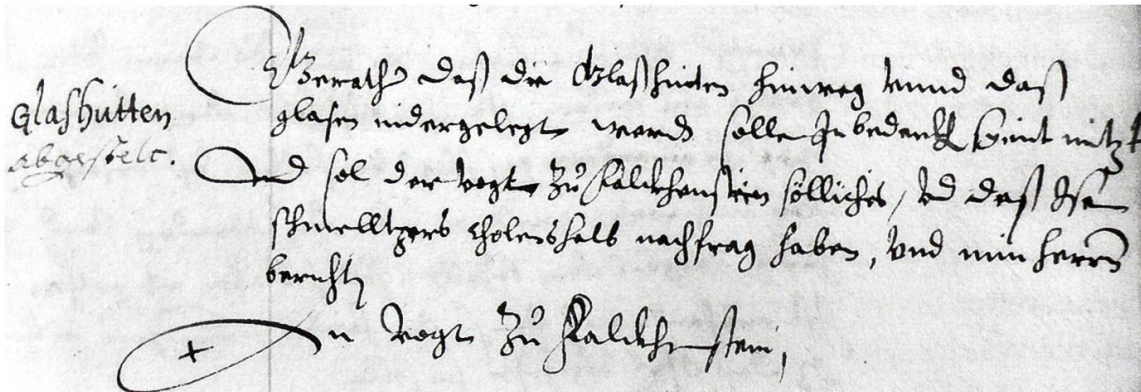 Glashütten
abgestelt.
Gerathen daß die Glaßhütten hinweg vnnd daß
glasen nidergelegt werden solle In bedenckh
Vnd sol der vogt zů Falckhenstein sölliches, vnd daß
schmelltzers cholens halb nachfrag haben, vnd min herrn
berichten
An vogt zů Falckhenstein,